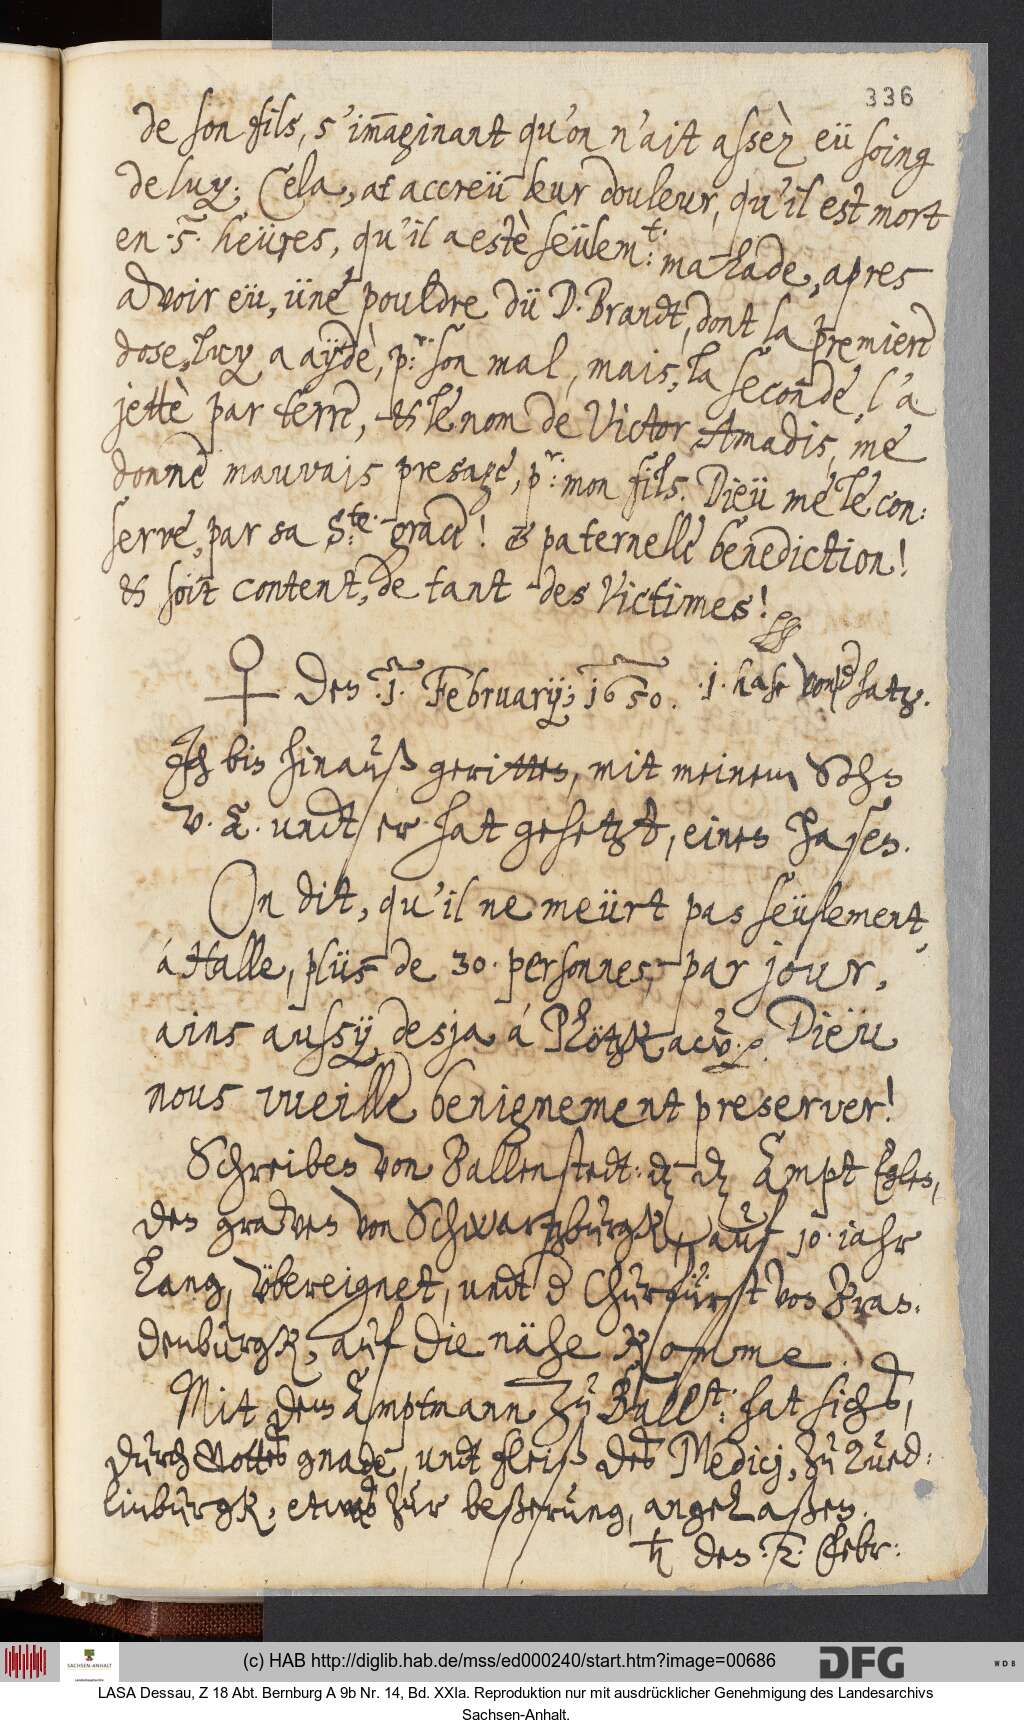 336
de son fils, s'im̄aginant qu'on n'ait assèz eü soing
de luy; Cela, at accreü leur douleur, qu'il est mort
en ·5· heüres, qu'il a estè seülem:t· malade, apres
advoir eü, üne pouldre dü D. Brandt, dont la premiere
dose, luy a aÿdè, p:r· son mal, mais, la seconde, l'a
jettè par terre, & le nom de Victor Amadis, me
donne mauvais presage, p:r· mon fils. Dieü me le con:
serve, par sa S:te· grace! & paternelle benediction!
& soit content, de tant des Victimes!
♀ den ·1· Februarij; 1650. ·1· hase von hatz.
Ich bin hinauß geritten, mit meinem Sohn
V. A. undt er hat gehetzt, einen Hasen.
On dit, qu'il ne meürt pas seülement,
á Halle, plüs de 30· personnes, par jour,
ains aussÿ desja á Plötzkaw. Dieu
nous vueille benignement preserver!
Schreiben von Ballenstedt: dz dz Ampt Egeln,
den graven von Schwartzburgk, auf 10· iahr
lang, übereignet, undt d Churfürst von Bran,
denburgk, auf die nähe komme.
Mit dem Amptmann zu Ball:t· hat sichs,
durch Gottes gnade, undt fleiß des Medicj, zu Qued:
linburgk, etwas zur beßerung, angelaßen.
♄ den ·2· Febr:
(c) HAB http://diglib.hab.de/mss/ed000240/start.htm?image=00686
SACHSEN-ANHALT
DFG
WDB
LASA Dessau, Z 18 Abt. Bernburg A 9b Nr. 14, Bd. XXIa. Reproduktion nur mit ausdrücklicher Genehmigung des Landesarchivs
Sachsen-Anhalt.